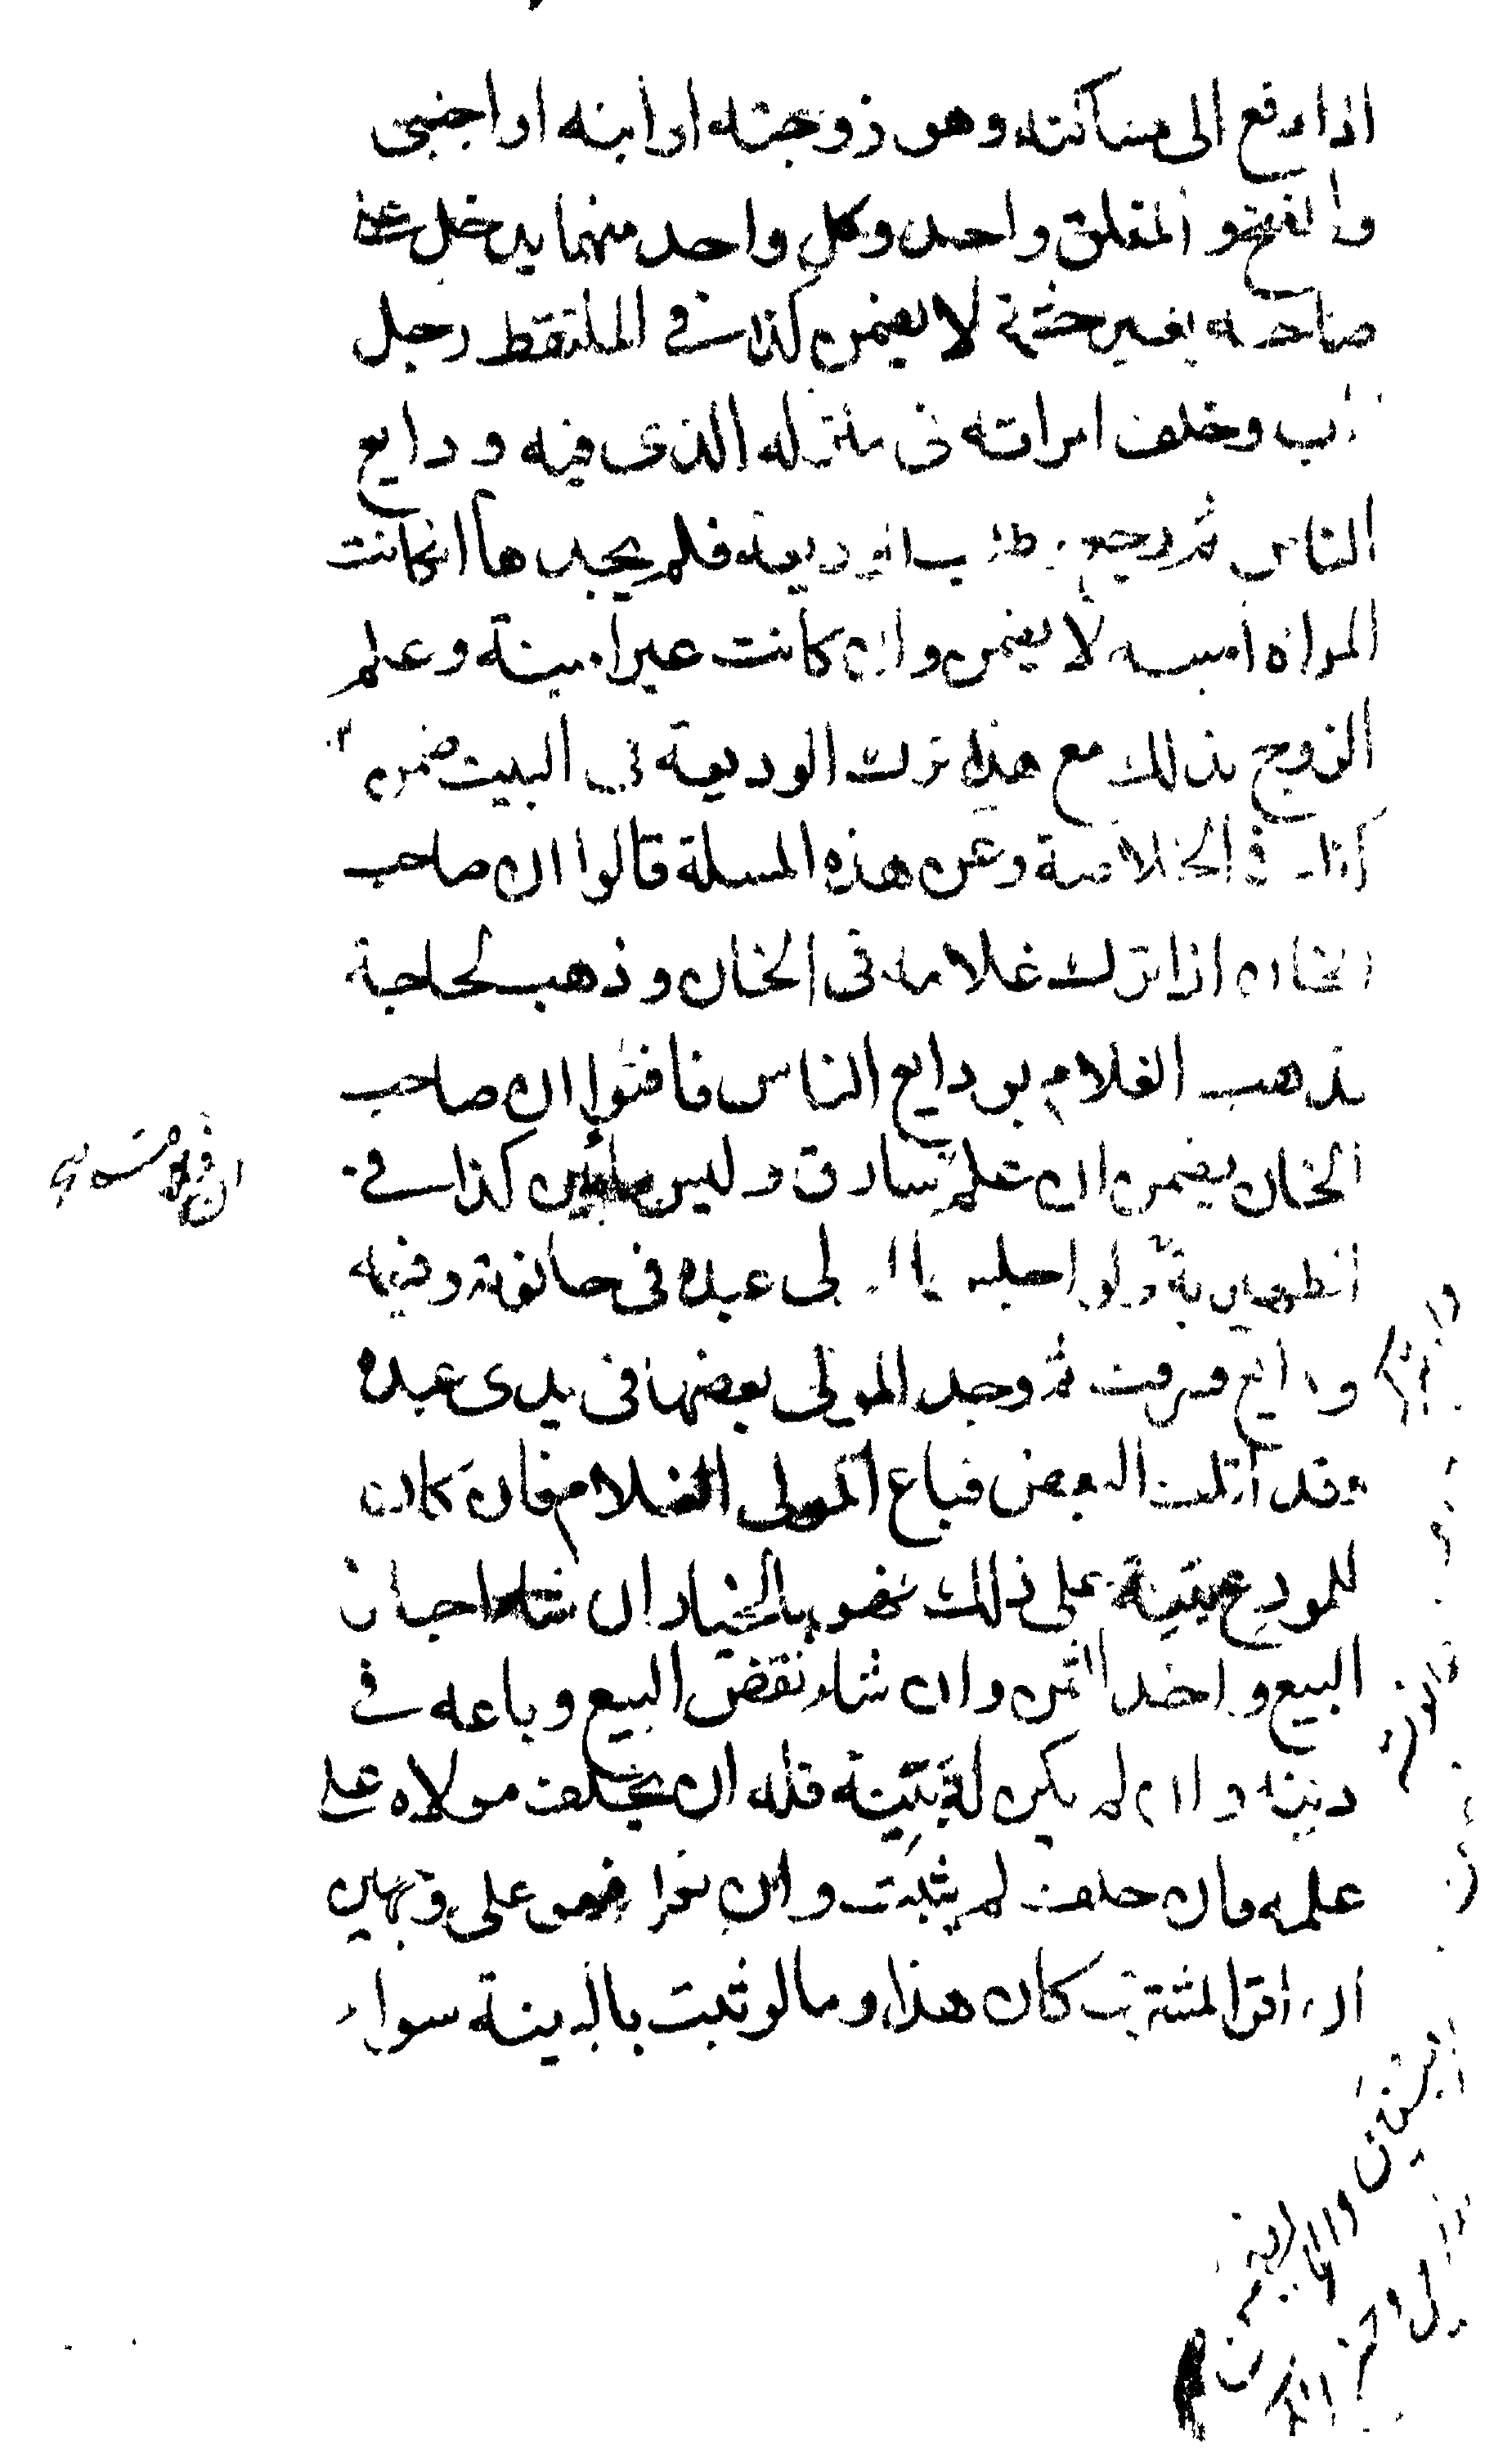 اذا دفع الى مساكنته وهو زوجته او ابنه او اجنبي
والفتح و المغلق واحد وكل واحد منهما يدخل على
صاحبه بغير حشمة لا يضمن كذا في الملتقط رجل
غاب وخلف امراته في منزله الذى فيه ودايع
الناس ثم رجع وطلب الوديعة فلم يجدها انكانت
المراة امينه لا يضمن وان كانت غير امينة وعلم
الزوج بذلك مع هذا ترك الوديعة في البيت ضمن
كذا في الخلاصة وعن هذه المسلة قالوا ان صاحب
الخان اذا ترك غلامه في الخان وذهب لحاجة
فذهب الغلام بودايع الناس فافتوا ان صاحب
الخان يضمن ان علم سارق وليس بامين كذا في
الظهيرية ولو اجلس المولى عبده في حانوته وفيه
ودايع فسرقت ثم وجد المولى بعضها في يدى عبده
وقد اتلف البعض فباع المولى الغلام فان كان
للمودع بينة على ذلك فهو بالخيار ان شاء اجاز
البيع واخذ الثمن وان شاء نقض البيع وباعه في
دينه وان لم يكن له بينة فله ان يحلف مولاه على
علمه فان حلف لم يثبت وان نكل فهو على وجهين
ان اقر المشترى كان هذا وما لو ثبت بالبينة سواء